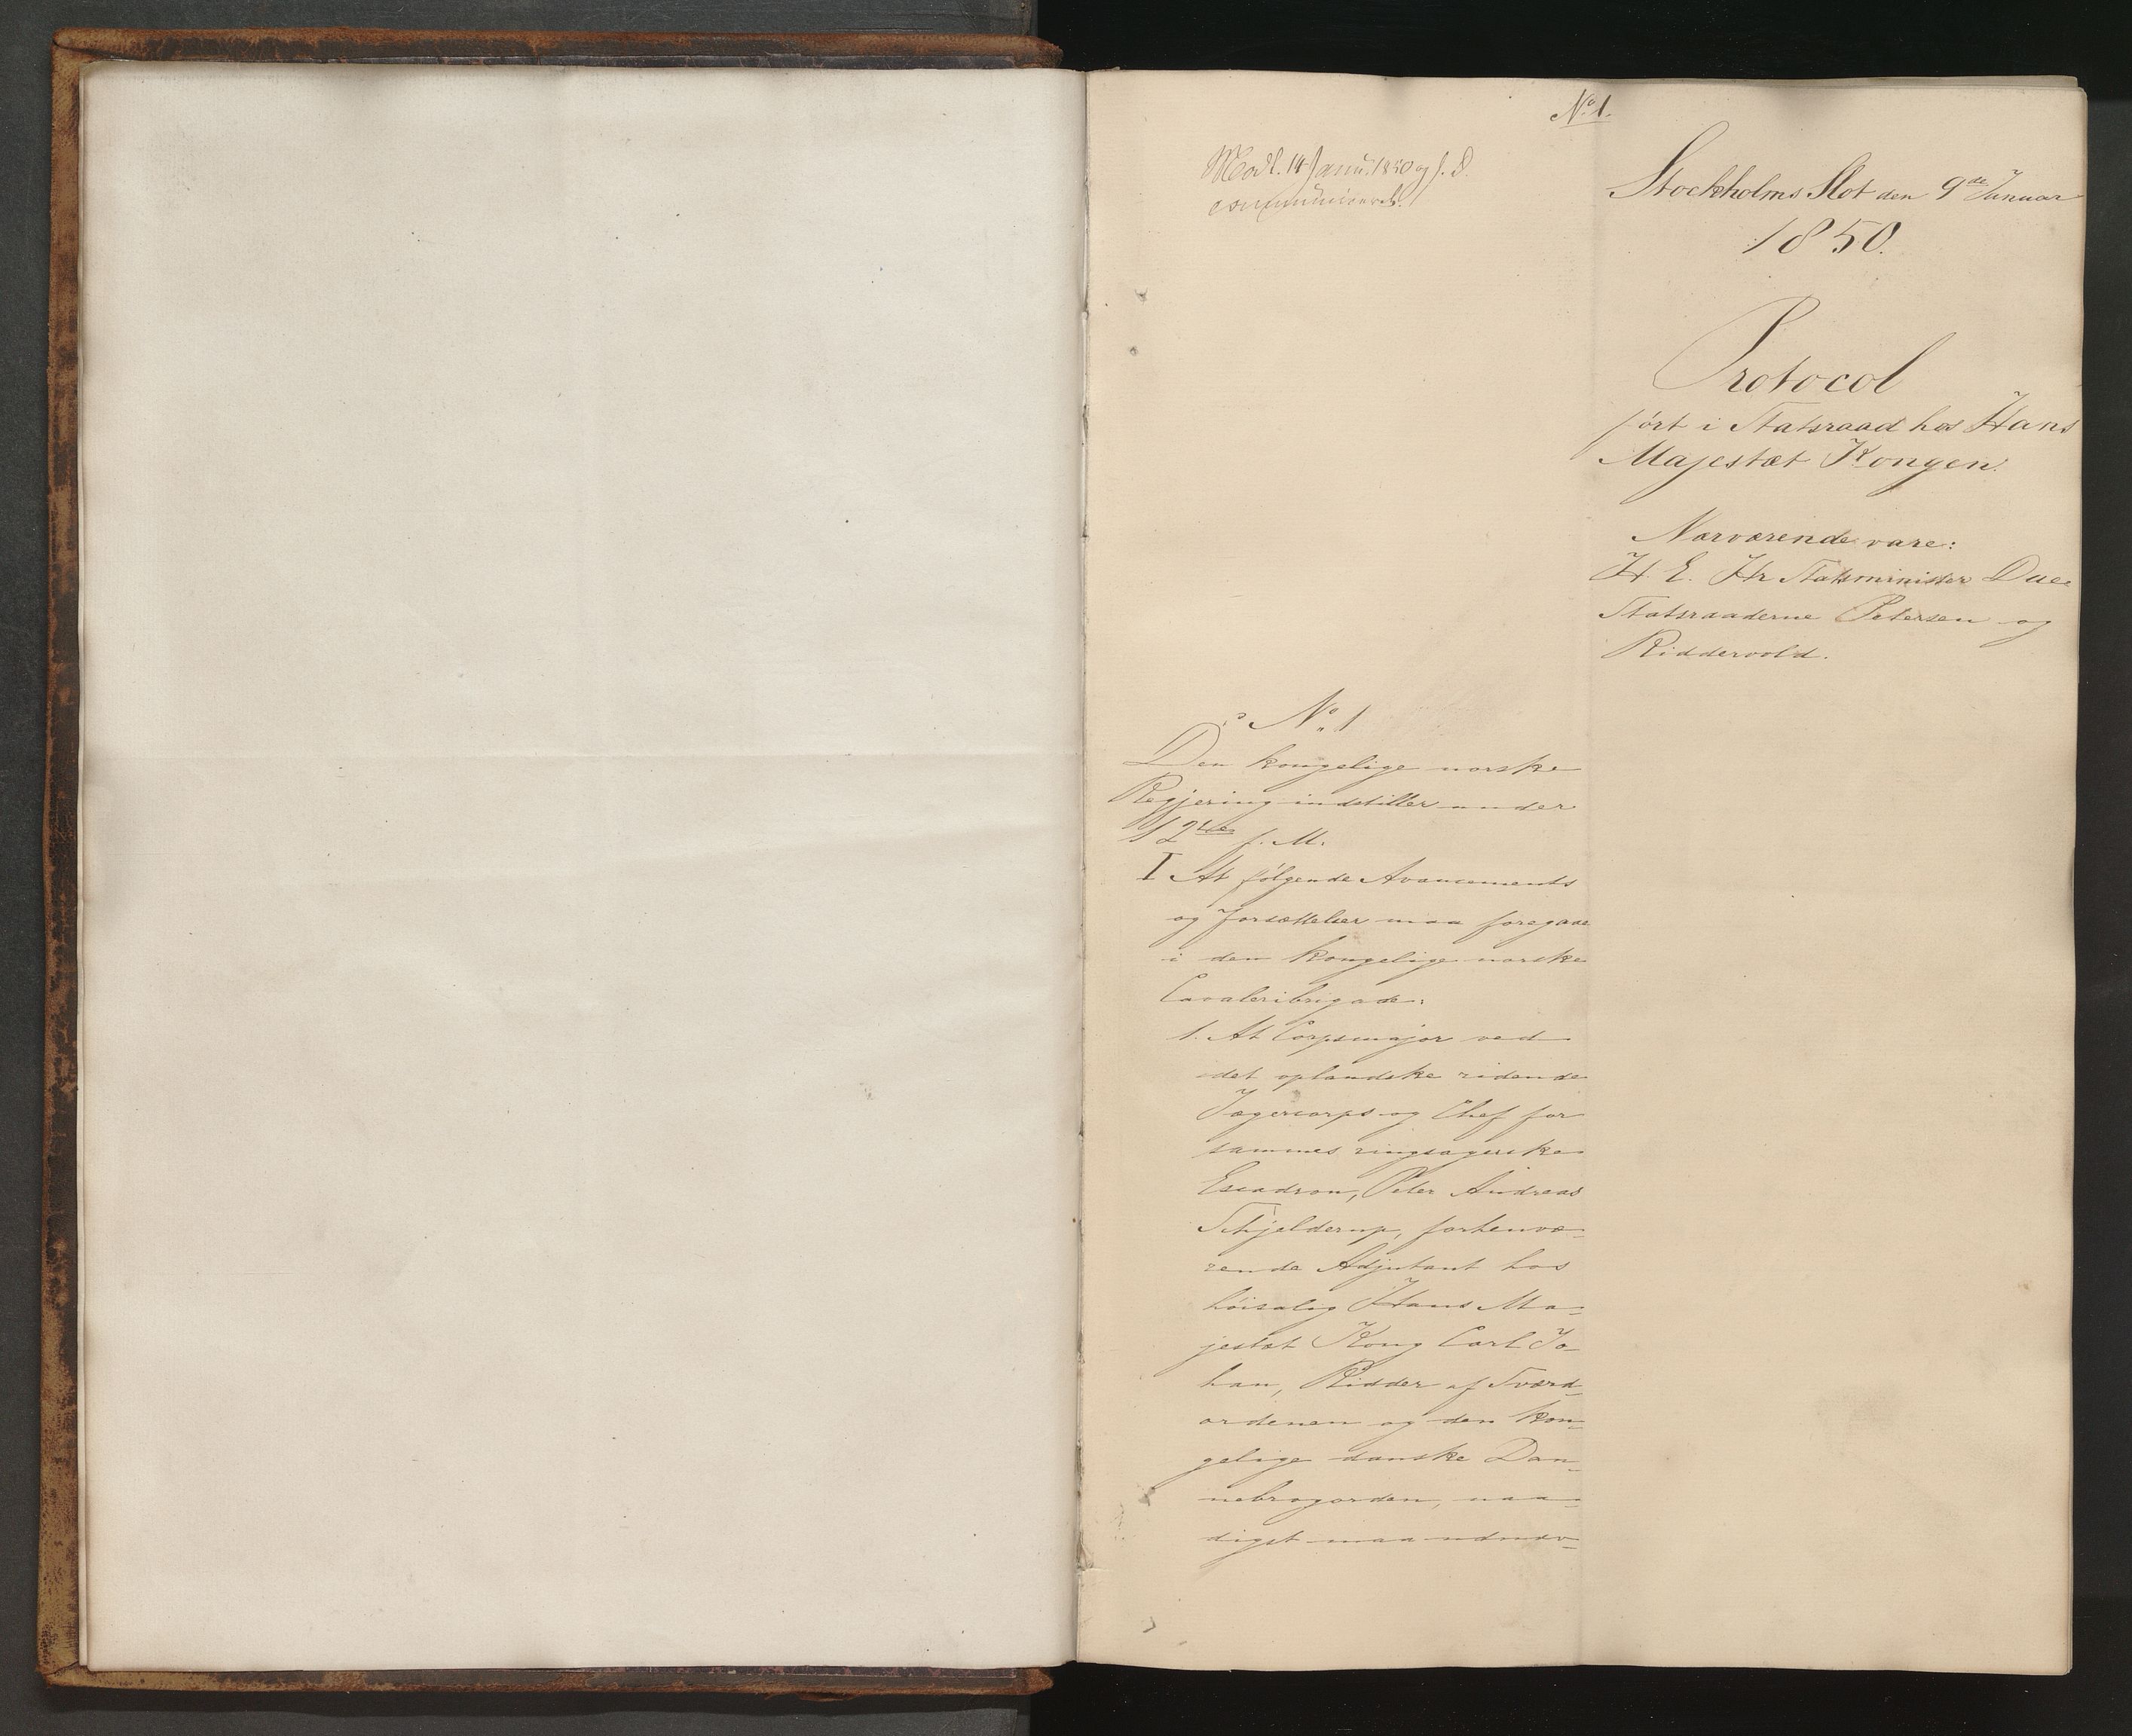 No 1.
Modt. 14 Janu. 1850 og s. D.
communiceret.
Stockholms Slot den 9de Januar
1850.
Protocol
ført i Statsraad hos Hans
Majestæt Kongen.
Nærværende vare:
H. E. Hr Statsminister Due
Statsraaderne Petersen og
Riddervold.
No 1
Den kongelige norske
Regjering indstiller under
12te f. M.
I At følgende Avancements
og Forsættelser maa foregaae
i den kongelige norske
Cavaleribrigade:
1. At Corpsmajor ved
det oplandske ridende
Jægercorps og Chef for
sammes ringsagerske
Escadron, Peter Andreas
Schjelderup, forhenvæ-
rende Adjutant hos
høisalig Hans Ma-
jestæt Kong Carl Jo-
han, Ridder af Sværd-
ordenen og den kon-
gelige danske Dan-
nebrogorden, naa-
digst maa udnæv-